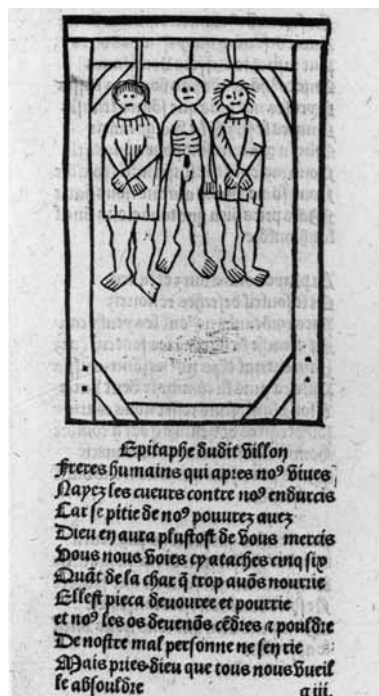 Epitaphe dudit Villon
Freres humains qui apres noꝰ viues
Nayez les cueurs contre noꝰ endurcis
Car se pitie de noꝰ pouurez auez
Dieu en aura plustost de vous mercis
Vous nous voies cy ataches cinq six
Quãt de la char q̃ trop auõs nourrie
Ellest pieca deuouree et pourrie
et noꝰ les os deuenõs cẽdres a pouldre
De nostre mal personne ne sen rie
Mais pries dieu que tous nous vueil
le absouldre g iii.